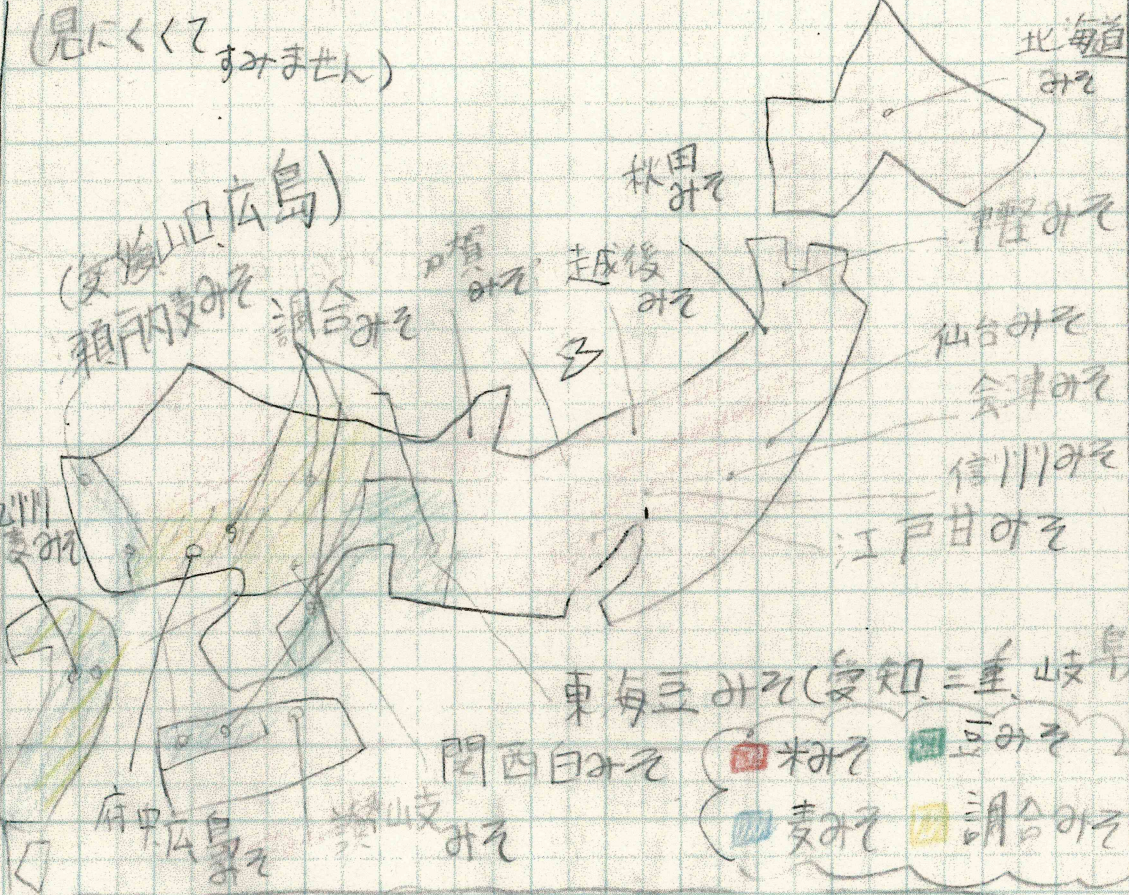 (見にくくて
すみません)
北海道
みそ
秋田
みそ
津軽みそ
(愛媛、山口、広島)
瀬戸内麦みそ
調合みそ
加賀
みそ
越後
みそ
仙台みそ
会津みそ
信州みそ
江戸甘みそ
麦みそ
東海豆みそ(愛知、三重、岐阜
関西白みそ
府中
広島
みそ
讃岐
みそ
米みそ
豆みそ
麦みそ
調合みそ